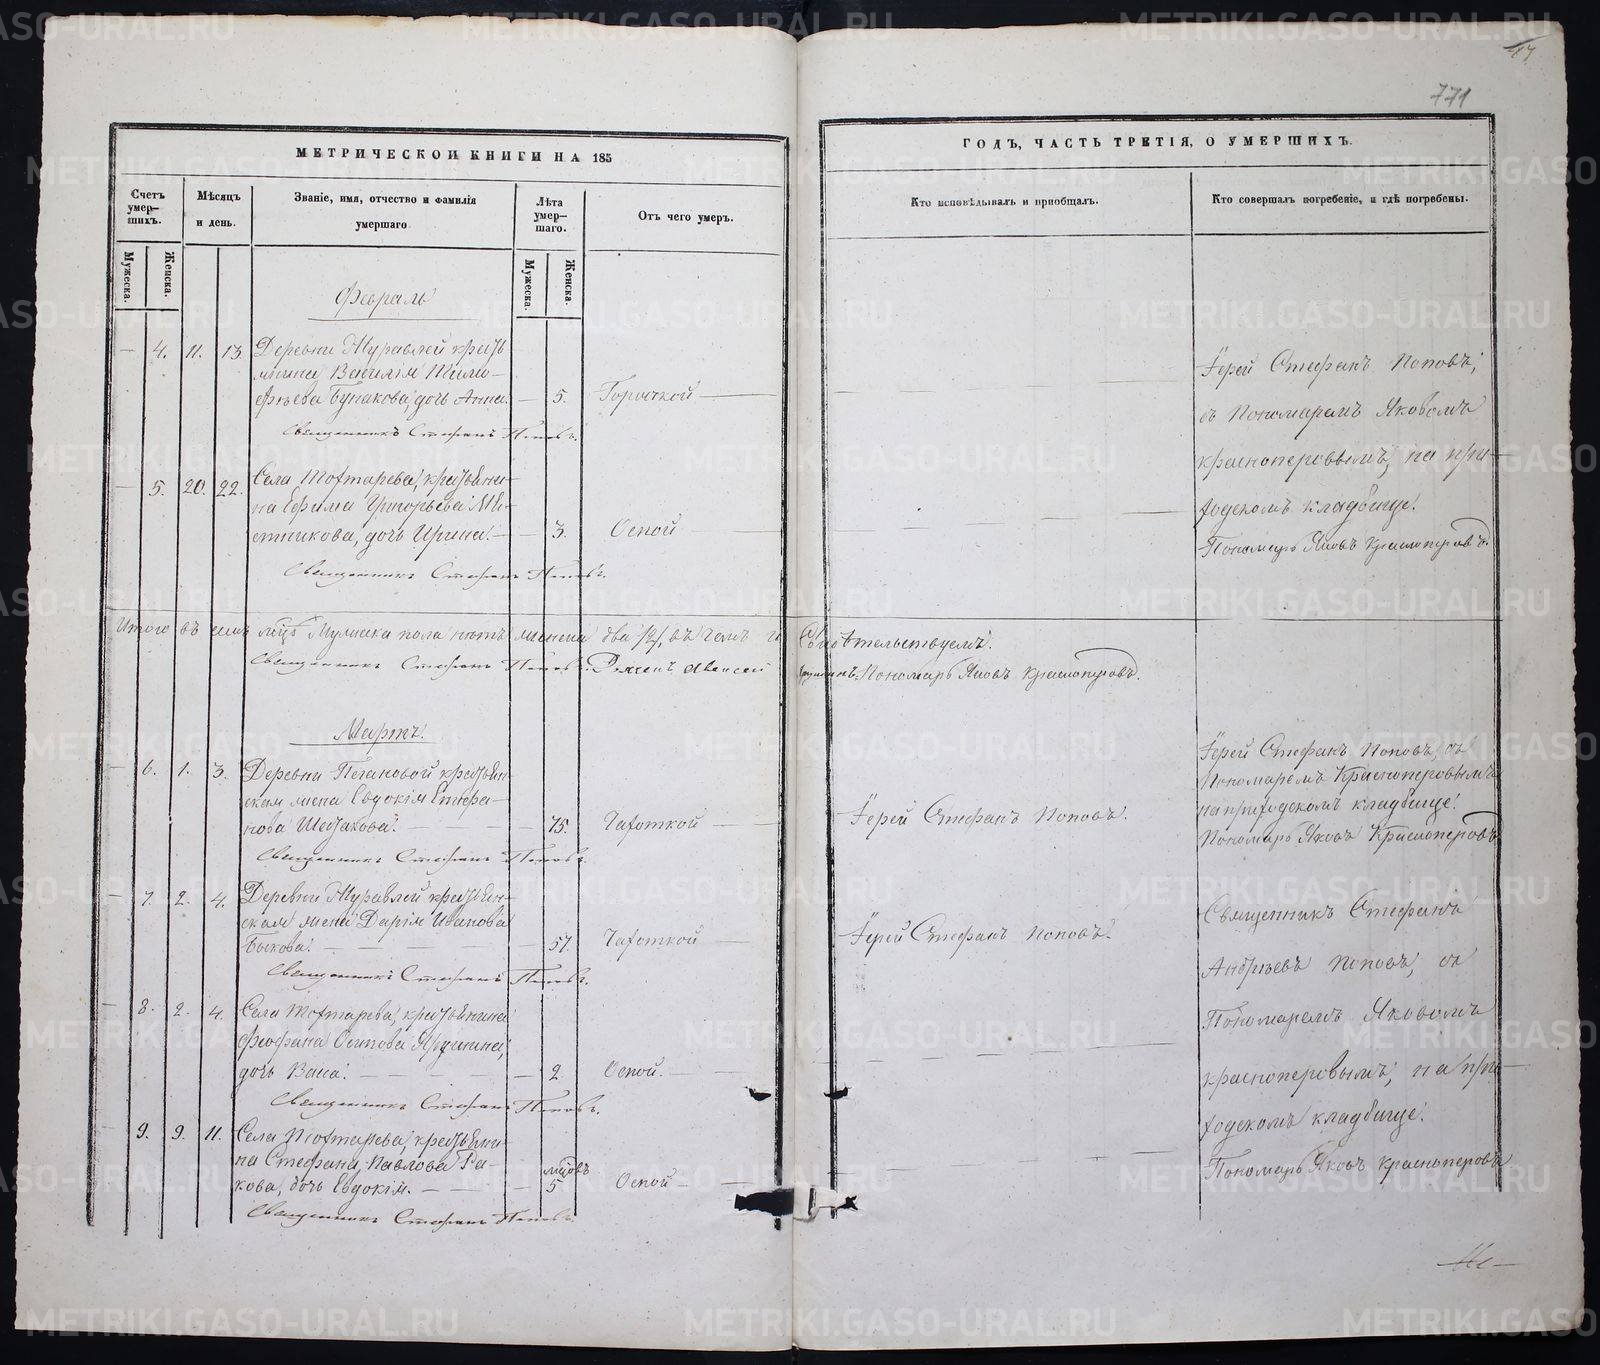 771
МЕТРИЧЕСКОЙ КНИГИ НА 185
ГОДЪ, ЧАСТЬ ТРЕТІЯ, О УМЕРШИХЪ.
Счетъ умер-шихъ.
Мужеска.
Женска.
Мѣсяцъ и день.
Званіе, имя, отчество и фамилія умершаго
Лѣта умер-шаго.
Мужеска.
Женска.
Отъ чего умеръ.
Кто исповѣдывалъ и пріобщалъ.
Кто совершалъ погребеніе, и гдѣ погребены.
Февраль
4. 11. 13. Деревни Журавлей крестья
нина Василія Тимо-
феева Бунакова, дочь Анна. 5. Горячкой
Священникъ Стефанъ Поповъ.
Іерей Стефанъ Поповъ,
съ Пономаремъ Яковомъ
Красноперовымъ, на при-
ходскомъ кладбище.
Пономарь Яковъ Красноперовъ.
5. 20. 22. Села Тохтарева, крестьяни-
на Ефима Григорьева
дочь Ирина. 3. Оспой
Священникъ Стефанъ Поповъ.
Итого въ семъ Мужеска пола нѣтъ женска два /2/, въ чемъ и Свидѣтельствуемъ.
Священникъ Стефанъ Поповъ. Діаконъ Алексей
Пономарь Яковъ Красноперовъ.
Мартъ.
6. 1. 3. Деревни Пегановой крестьян-
ская жена Евдокія Епифа-
нова 75. Чахоткой
Священникъ Стефанъ Поповъ.
Іерей Стефанъ Поповъ.
Іерей Стефанъ Поповъ, съ
Пономаремъ Красноперовымъ
на приходскомъ кладбище.
Пономарь Яковъ Красноперовъ.
7. 2. 4. Деревни Журавлей крестьян-
ская жена Дарія Иванова
Быкова. 57. Чахоткой
Священникъ Стефанъ Поповъ.
Іерей Стефанъ Поповъ.
Священникъ Стефанъ
Андреевъ Поповъ, съ
Пономаремъ Яковомъ
Красноперовымъ, на при-
ходскомъ кладбище.
Пономарь Яковъ Красноперовъ
8. 2. 4. Села Тохтарева, крестьянина
Феофана Осипова
дочь Васса. 2 Оспой.
Священникъ Стефанъ Поповъ.
9. 9. 11. Села Тохтарева, крестьяни-
на Стефана Павлова Ра-
кова, дочь Евдокія. 5 Оспой
Священникъ Стефанъ Поповъ.
METRIKI.GASO-URAL.RU